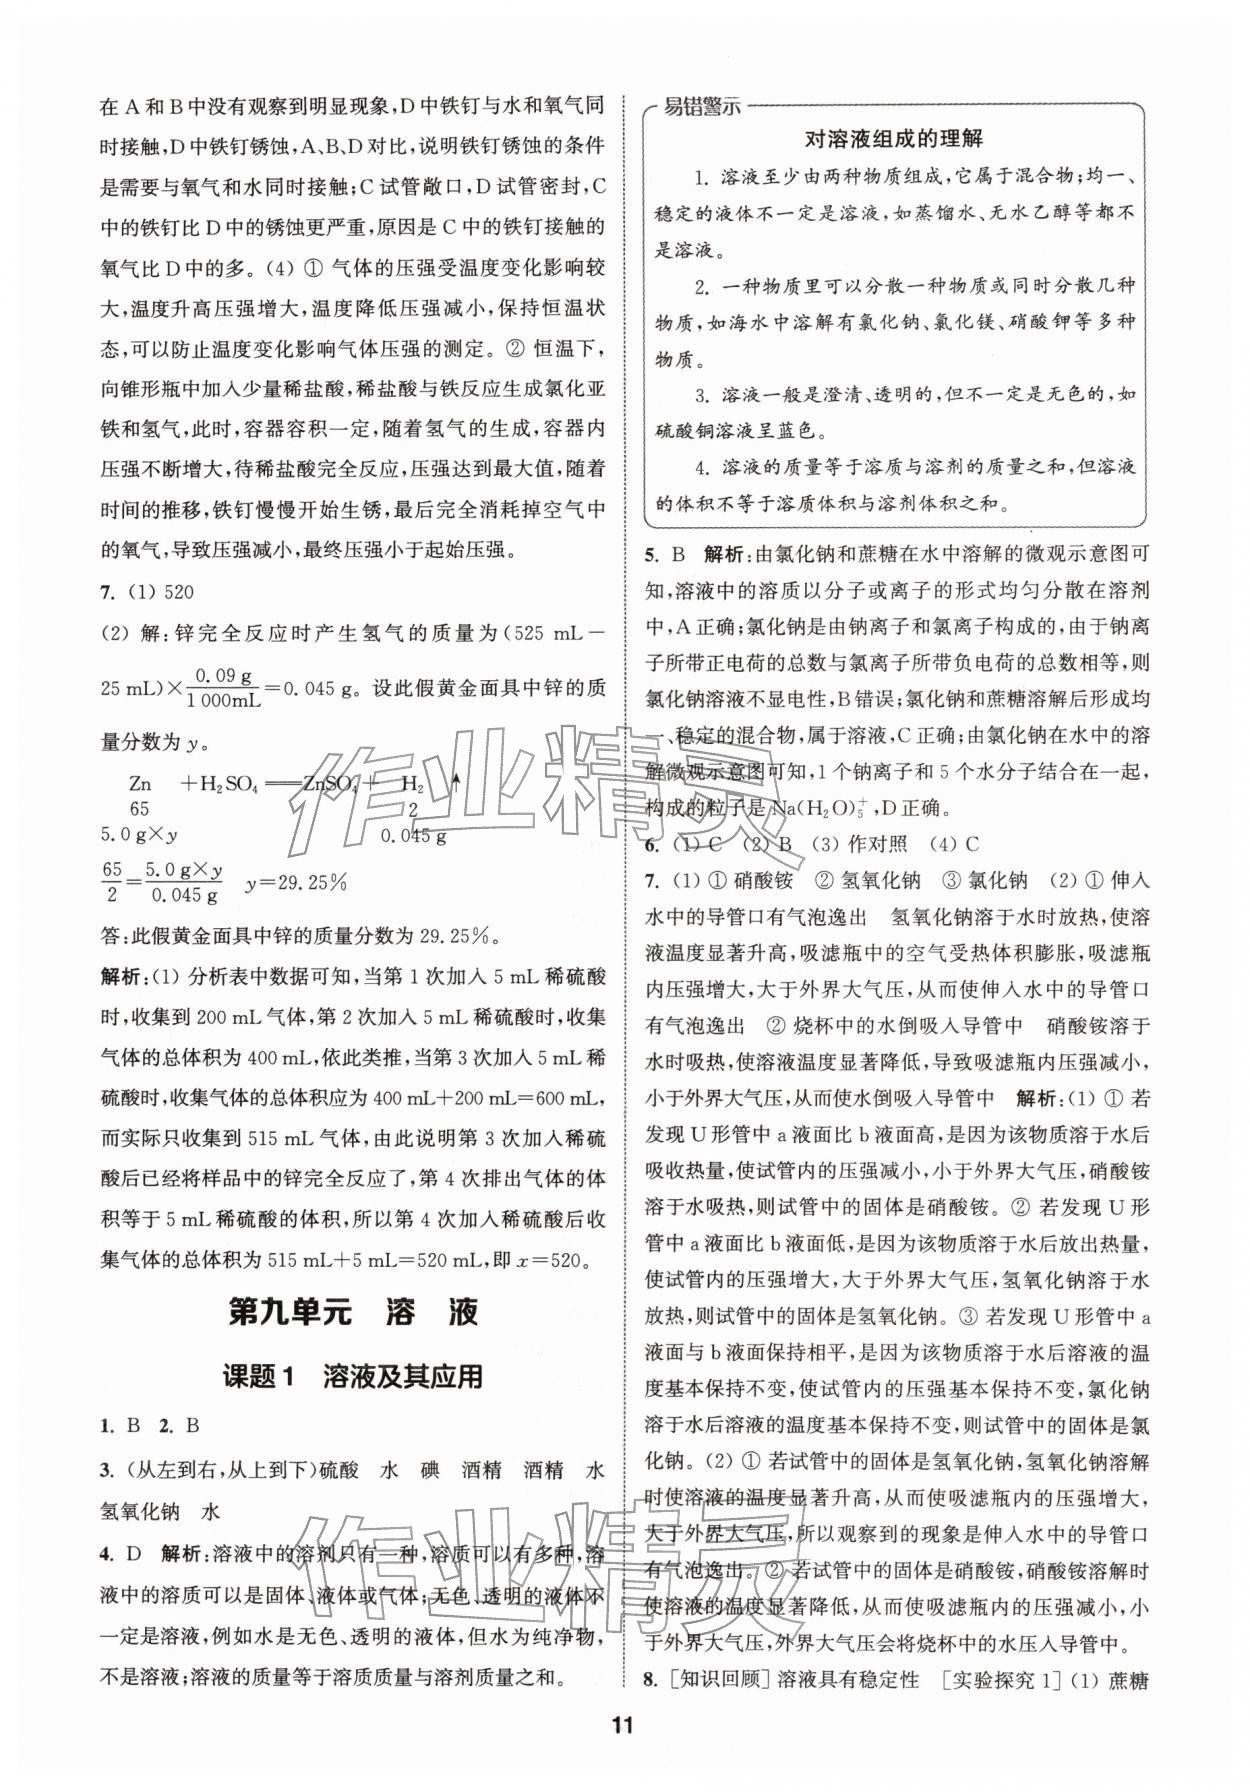 在 A 和 B 中没有观察到明显现象,D 中铁钉与水和氧气同
时接触,D 中铁钉锈蚀,A、B、D 对比,说明铁钉锈蚀的条件
是需要与氧气和水同时接触;C 试管敞口,D 试管密封,C
中的铁钉比 D 中的锈蚀更严重,原因是 C 中的铁钉接触的
氧气比 D 中的多。(4) ① 气体的压强受温度变化影响较
大,温度升高压强增大,温度降低压强减小,保持恒温状
态,可以防止温度变化影响气体压强的测定。② 恒温下,
向锥形瓶中加入少量稀盐酸,稀盐酸与铁反应生成氯化亚
铁和氢气,此时,容器容积一定,随着氢气的生成,容器内
压强不断增大,待稀盐酸完全反应,压强达到最大值,随着
时间的推移,铁钉慢慢开始生锈,最后完全消耗掉空气中
的氧气,导致压强减小,最终压强小于起始压强。
7. (1) 520
(2) 解:锌完全反应时产生氢气的质量为(525 mL－
25 mL)×0.09 g/1 000mL=0.045 g。设此假黄金面具中锌的质
量分数为 y。
Zn +H₂SO₄══ZnSO₄+ H₂↑
65 2
5.0 g×y 0.045 g
65/2=5.0 g×y/0.045 g y=29.25%
答:此假黄金面具中锌的质量分数为 29.25%。
解析:(1) 分析表中数据可知,当第 1 次加入 5 mL 稀硫酸
时,收集到 200 mL 气体,第 2 次加入 5 mL 稀硫酸时,收集
气体的总体积为 400 mL,依此类推,当第 3 次加入 5 mL 稀
硫酸时,收集气体的总体积应为 400 mL+200 mL=600 mL,
而实际只收集到 515 mL 气体,由此说明第 3 次加入稀硫
酸后已经将样品中的锌完全反应了,第 4 次排出气体的体
积等于 5 mL 稀硫酸的体积,所以第 4 次加入稀硫酸后收
集气体的总体积为 515 mL+5 mL=520 mL,即 x=520。
第九单元 溶 液
课题 1 溶液及其应用
1. B 2. B
3. (从左到右,从上到下)硫酸 水 碘 酒精 酒精 水
氢氧化钠 水
4. D 解析:溶液中的溶剂只有一种,溶质可以有多种,溶
液中的溶质可以是固体、液体或气体;无色、透明的液体不
一定是溶液,例如水是无色、透明的液体,但水为纯净物,
不是溶液;溶液的质量等于溶质质量与溶剂质量之和。
易错警示
对溶液组成的理解
1. 溶液至少由两种物质组成,它属于混合物;均一、
稳定的液体不一定是溶液,如蒸馏水、无水乙醇等都不
是溶液。
2. 一种物质里可以分散一种物质或同时分散几种
物质,如海水中溶解有氯化钠、氯化镁、硝酸钾等多种
物质。
3. 溶液一般是澄清、透明的,但不一定是无色的,如
硫酸铜溶液呈蓝色。
4. 溶液的质量等于溶质与溶剂的质量之和,但溶液
的体积不等于溶质体积与溶剂体积之和。
5. B 解析:由氯化钠和蔗糖在水中溶解的微观示意图可
知,溶液中的溶质以分子或离子的形式均匀分散在溶剂
中,A 正确;氯化钠是由钠离子和氯离子构成的,由于钠离
子所带正电荷的总数与氯离子所带负电荷的总数相等,则
氯化钠溶液不显电性,B 错误;氯化钠和蔗糖溶解后形成均
一、稳定的混合物,属于溶液,C 正确;由氯化钠在水中的溶
解微观示意图可知,1 个钠离子和 5 个水分子结合在一起,
构成的粒子是 Na(H₂O)₅⁺,D 正确。
6. (1) C (2) B (3) 作对照 (4) C
7. (1) ① 硝酸铵 ② 氢氧化钠 ③ 氯化钠 (2) ① 伸入
水中的导管口有气泡逸出 氢氧化钠溶于水时放热,使溶
液温度显著升高,吸滤瓶中的空气受热体积膨胀,吸滤瓶
内压强增大,大于外界大气压,从而使伸入水中的导管口
有气泡逸出 ② 烧杯中的水倒吸入导管中 硝酸铵溶于
水时吸热,使溶液温度显著降低,导致吸滤瓶内压强减小,
小于外界大气压,从而使水倒吸入导管中 解析:(1) ① 若
发现 U 形管中 a 液面比 b 液面高,是因为该物质溶于水后
吸收热量,使试管内的压强减小,小于外界大气压,硝酸铵
溶于水吸热,则试管中的固体是硝酸铵。② 若发现 U 形
管中 a 液面比 b 液面低,是因为该物质溶于水后放出热量,
使试管内的压强增大,大于外界大气压,氢氧化钠溶于水
放热,则试管中的固体是氢氧化钠。③ 若发现 U 形管中 a
液面与 b 液面保持相平,是因为该物质溶于水后溶液的温
度基本保持不变,使试管内的压强基本保持不变,氯化钠
溶于水后溶液的温度基本保持不变,则试管中的固体是氯
化钠。(2) ① 若试管中的固体是氢氧化钠,氢氧化钠溶解
时使溶液的温度显著升高,从而使吸滤瓶内的压强增大,
大于外界大气压,所以观察到的现象是伸入水中的导管口
有气泡逸出。② 若试管中的固体是硝酸铵,硝酸铵溶解时
使溶液的温度显著降低,从而使吸滤瓶内的压强减小,小
于外界大气压,外界大气压会将烧杯中的水压入导管中。
8. [知识回顾] 溶液具有稳定性 [实验探究 1] (1) 蔗糖
11
作业精灵
作业精灵